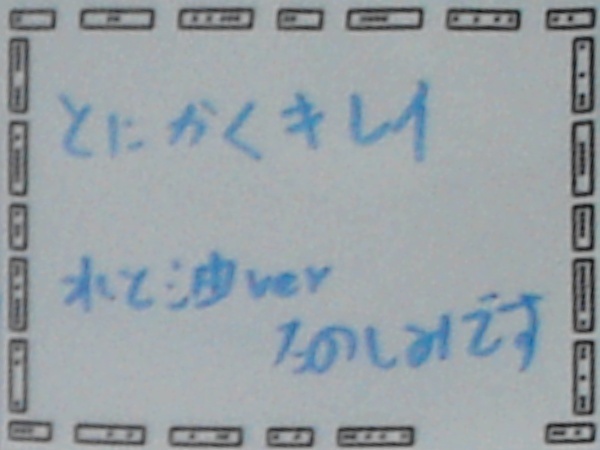 とにかくキレイ
水と油ver
たのしみです